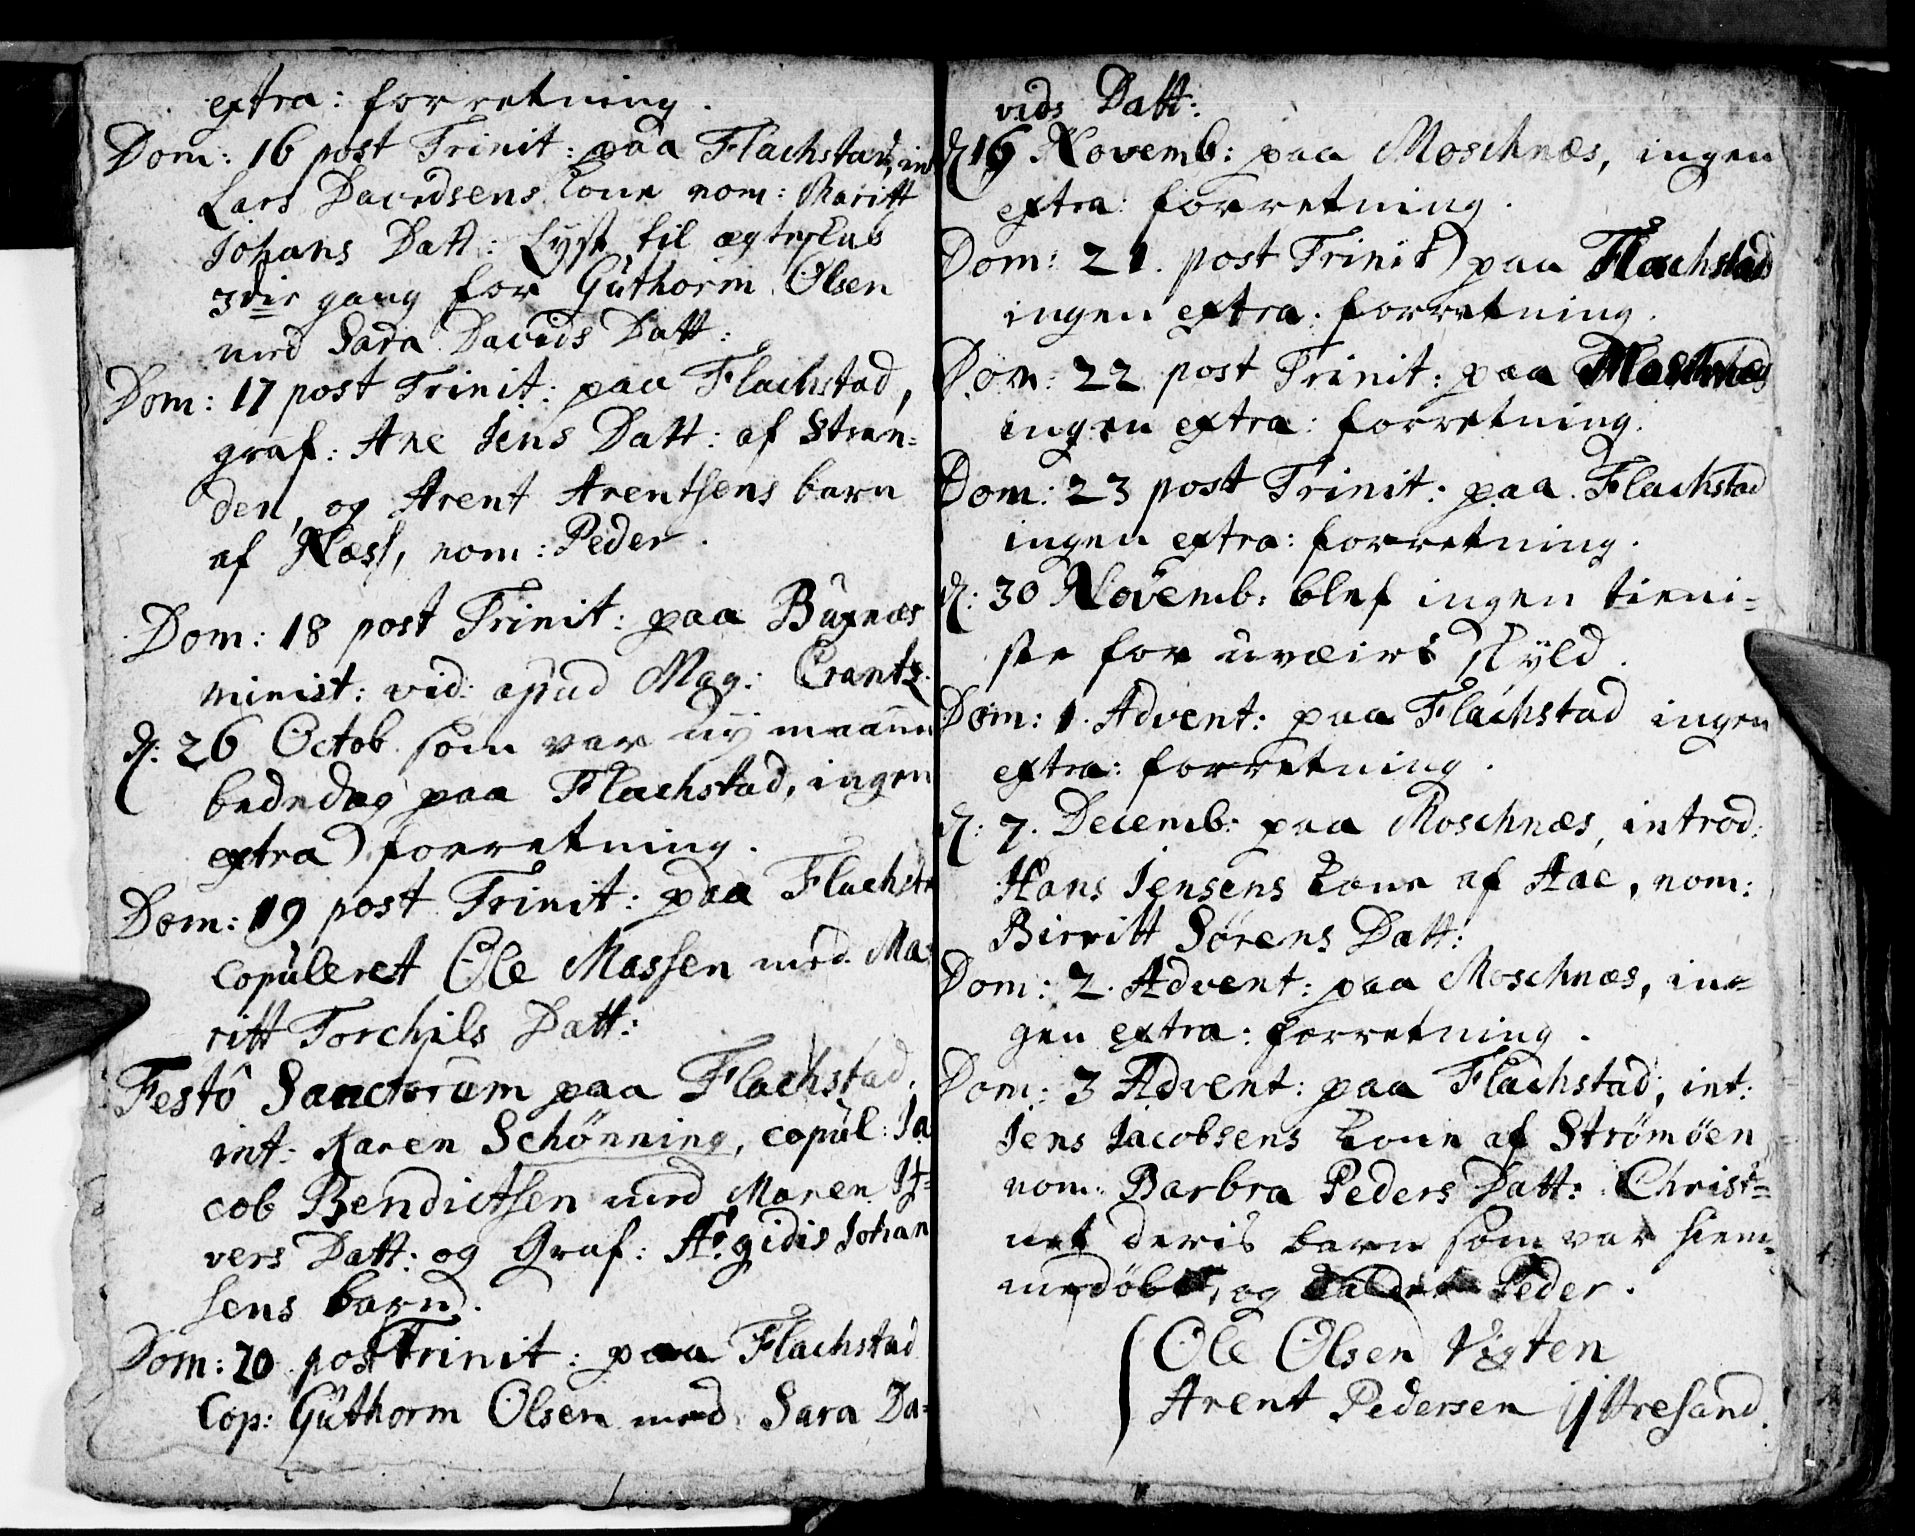 extra: forretning.
Dom: 16 post Trinit: paa Flachstad, int
Lars Davidsens kone nom: Maritt
Johans Datt: Lyst til ægteskab
3die gang for Guthorm Olsen
med Sara Davids Datt:
Dom: 17 post Trinit: paa Flachstad,
graf: Ane Jens Datt: af Stran-
den, og Arent Arentsens barn
af Næss, nom: Peder.
Dom: 18 post Trinit: paa Buxnæs
minist: vid: apud Mag: Crantz.
d: 26 Octob. som var ny maaneds
bededag paa Flachstad, ingen
extra forretning.
Dom: 19 post Trinit: paa Flachsta
Copuleret Ole Massen med Ma-
ritt Torchils Datt:
Festo Sanctorum paa Flachstad,
int: Karen Schønning, copul: Ja
cob Bendictsen med Maren If-
vers Datt: og Graf: Ægidis Johan
sens barn.
Dom: 20 post Trinit: paa Flachstad
Cop: Guthorm Olsen med Sara Da-
vids Datt:
d: 16 Novemb: paa Moschnæs, ingen
extra: forretning.
Dom: 21. post Trinit paa Flachstad
ingen extra: forretning.
Dom: 22 post Trinit: paa Moschnæs
ingen extra: forretning.
Dom: 23 post Trinit: paa Flachstad
ingen extra: forretning.
d: 30 Novemb: blef ingen tieni-
ste for uvæirs skyld.
Dom: 1. Advent: paa Flachstad ingen
extra: forretning.
d: 7. Decemb: paa Moschnæs, introd:
Hans Jensens kone af Aae, nom:
Birritt Sørens Datt:
Dom: 2. Advent: paa Moschnæs, in-
gen extra: forretning.
Dom: 3 Advent: paa Flachstad, int:
Jens Jacobsens kone af Strømøen
nom: Barbra Peders Datt: Christ-
net deris barn som var hiem-
medøbt, og kaldet Peder.
Ole Olsen Vigten
Arent Pedersen Yttresand.